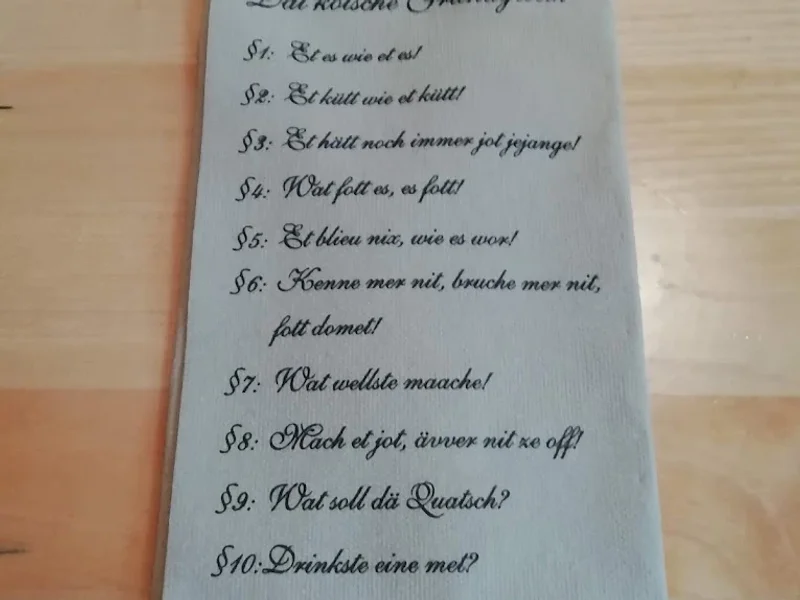 Dat kölsche Grundgesetz
§1: Et es wie et es!
§2: Et kütt wie et kütt!
§3: Et hätt noch immer jot jejange!
§4: Wat fott es, es fott!
§5: Et blieu nix, wie es wor!
§6: Kenne mer nit, bruche mer nit,
fott domet!
§7: Wat wellste maache!
§8: Mach et jot, ävver nit ze off!
§9: Wat soll dä Quatsch?
§10: Drinkste eine met?